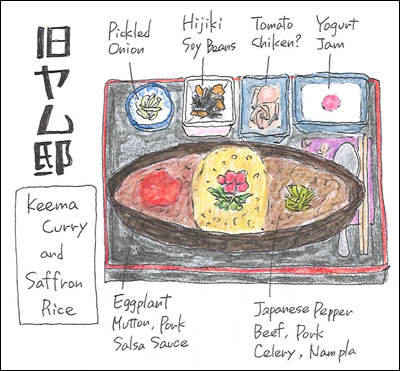 旧ヤム邸
Keema
Curry
and
Saffron
Rice
Pickled
Onion
Hijiki
Soy Beans
Tomato
Chiken?
Yogurt
Jam
Eggplant
Mutton, Pork
Salsa Sauce
Japanese Pepper
Beef, Pork
Celery, Nampla